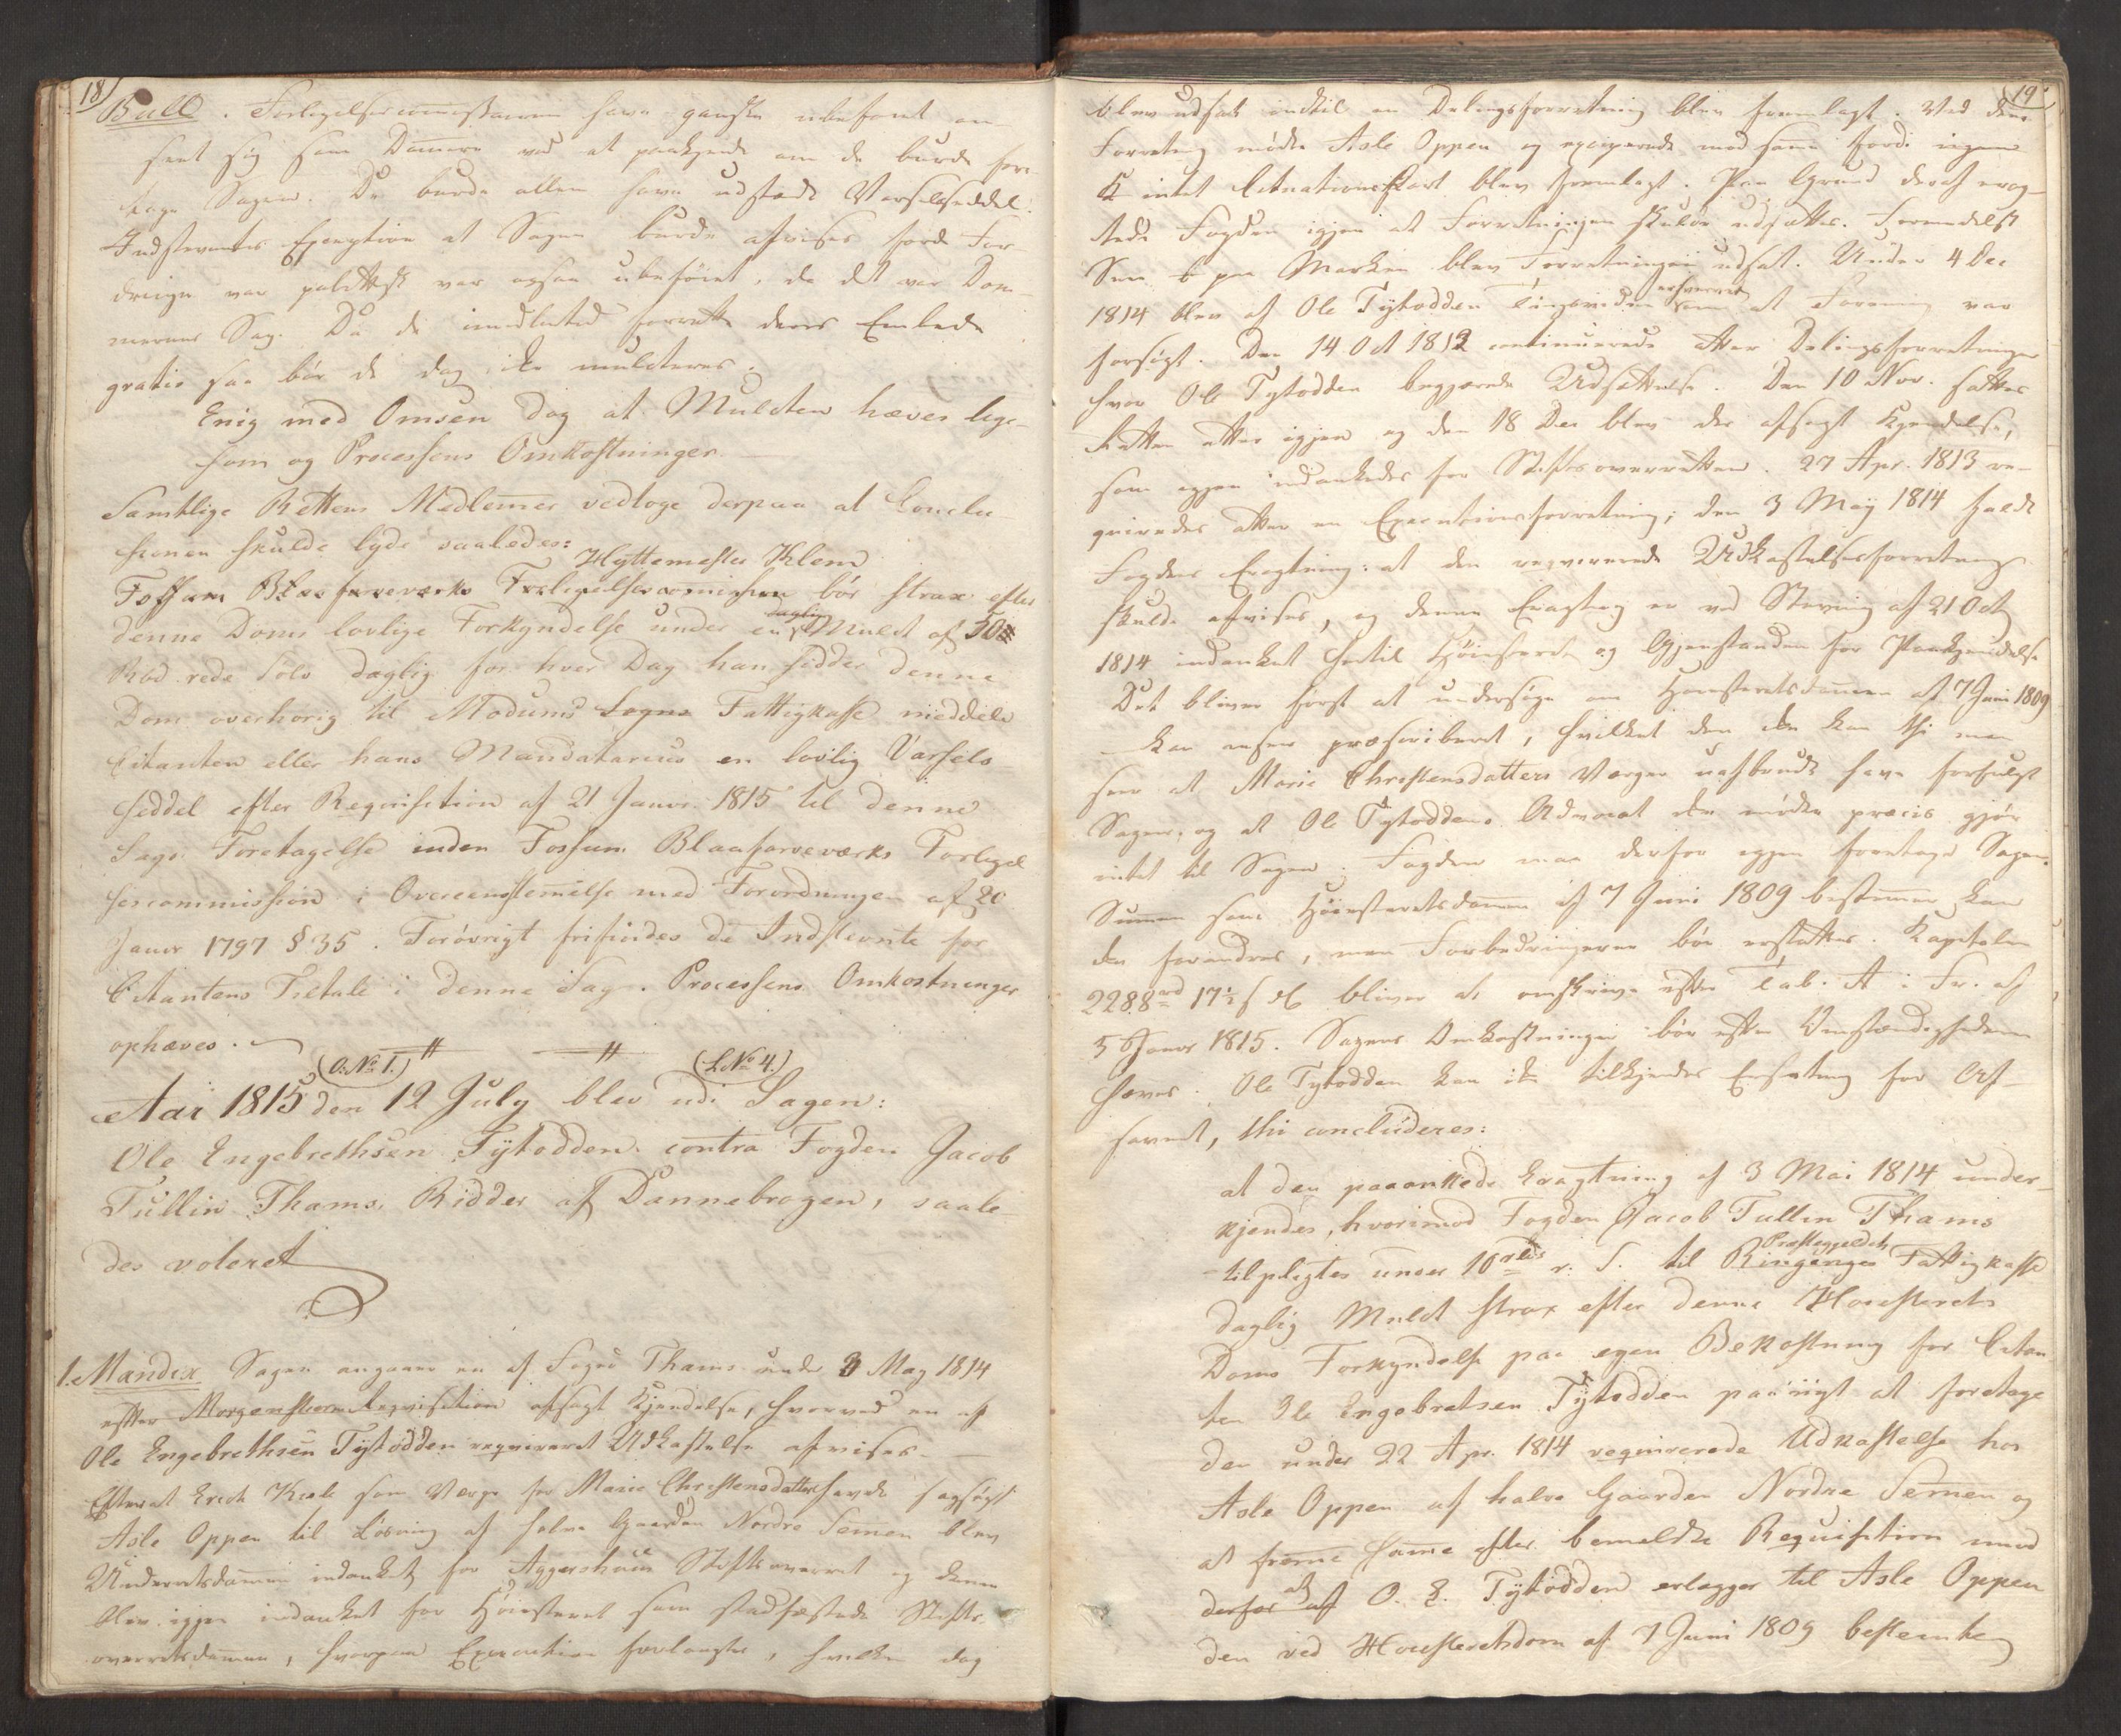 18
Bull. Forligelsescommissairene have ganske ubeføiet an-
seet sig som Dommere ved at paakjende om de burde fore-
tage Sagen. De burde allene have udstædt Varselseddel.
Indstevntes Exception at Sagen burde afvises fordi For-
dringen var politisk var ogsaa ubeføiet, da det var Dom-
merens Sag. Da de imidlertid forrette deres Embede
gratis saa bør de dog ikke mulcteres.
Enig med Omsen dog at Mulcten hæves lige-
som og Processens Omkostninger.
Samtlige Rettens Medlemmer vedtoge derpaa at Conclu-
sionen skulde lyde saaledes:
Hyttemester Klem
Fossum Blaafarveværks Forligelsescommission bör strax efter
denne Doms lovlige Forkyndelse under en daglig Mulct af 50
Rbd rede Sölv daglig for hver Dag han sidder denne
Dom overhörig til Modums Sogns Fattigkasse meddele
Citanten eller hans Mandatarius en lovlig Varsels
seddel efter Reqvisition af 21 Januar 1815 til denne
Sags Foretagelse inden Fossum Blaafarveværks Forligel
sescommission i Overeensstemmelse med Forordningen af 20
Januar 1797 § 35. Forövrigt frifindes de Indstevnte for
Citantens Tiltale i denne Sag. Processens Omkostninger
ophæves.
(O. No 1.) (L No 4.)
Aar 1815 den 12 July blev udi Sagen:
Ole Engebrethsen Tÿtodden contra Fogden Jacob
Tullin Thams, Ridder af Dannebrogen, saale
des voteret
1. Mandix Sagen angaaer en af Foged Thams under 3 May 1814
efter Morgenstiernes Reqvisition afsagt Kjendelse, hvorved en af
Ole Engebrethsen Tÿtodden reqvireret Udkastelse afvises.
Efterat Erich som Værge for Marie Christensdatter havde sagsøgt
Asle Oppen til Løsning af halve Gaarden Nordre Semmen blev
Underretsdommen indanket for Aggershuus Stiftsoverret og denne
blev igjen indanket for Høiesteret som stadfæstede Stifts-
overretsdommen, hvorpaa Execution forlangtes, hvilken dog
19
blev udsat indtil en Delingsforretning blev fremlagt. Ved denne
Forretning mødte Asle Oppen og exciperede mod samme fordi ingen
intet Situationskart blev fremlagt. Paa Grund deraf erag-
tede Fogden igjen at Forretningen skulde udsættes. Formedelst
Snee paa Marken blev Forretningen udsat. Under 4 Dec
1814 blev af Ole Tÿtodden Tingsviden erhvervet om at Forening var
forsøgt. Den 14 Oct 1812 continuerede atter Delingsforretningen
hvor Ole Tytodden begjærede Udsættelse. Den 10 Nov. sattes
Retten atter igjen og den 18 Dec blev der afsagt Kjendelse,
som igjen indankedes for Stiftsoverretten. 27 Apr. 1813 re-
qvireredes atter en Executionsforretning; den 3 May 1814 faldt
Fogdens Eragtning: at den reqvirerede Udkastelsesforretning
skulde afvises, og denne Eragtning er ved Stevning af 21 Oct
1814 indanket hertil Høiesteret og Gjenstanden for Paakjendelse
Det bliver først at undersøge om Høiesteretsdommen af 7 Juni 1809
kan ansees præscriberet, hvilket den ikke kan thi man
seer at Marie Christensdatters Værger uafbrudt have forfulgt
Sagen, og at Ole Tytoddens Advocat ikke mødte præcis gjør
intet til Sagen. Fogden maa derfor igjen foretage Sagen.
Summen som Høiesteretsdommen af 7 Juni 1809 bestemmer kan
ikke forandres, men Forbedringerne bør erstattes. Kapitalen
2288 rd 17½ s bliver at omskrive efter Tab. A i Fr. af
5 Januar 1815. Sagens Omkostninger bør efter Omstændighederne
hæves. Ole Tytodden kan ikke tilkjendes Ersatning for Af-
savnet, thi concluderes:
at den paaankede Eragtning af 3 Mai 1814 under-
kjendes, hvorimod Fogden Jacob Tullin Thams
tilpligtes under 10 rbd r. S. til Ringeriges Præstegjelds Fattigkasse
daglig Mulct strax efter denne Höiesterets
Doms Forkyndelse paa egen Bekostning for Citan
ten Ole Engebretsen Tÿtodden paa nÿt at foretage
den under 22 Apr. 1814 reqvirerede Udkastelse hos
Asle Oppen af halve Gaarden Nordre Semmen og
at fremme samme efter bemeldte Reqvisition imod
derfor af at O. E. Tÿtodden erlægger til Asle Oppen
den ved Höiesteretsdom af 7 Juni 1809 bestemte